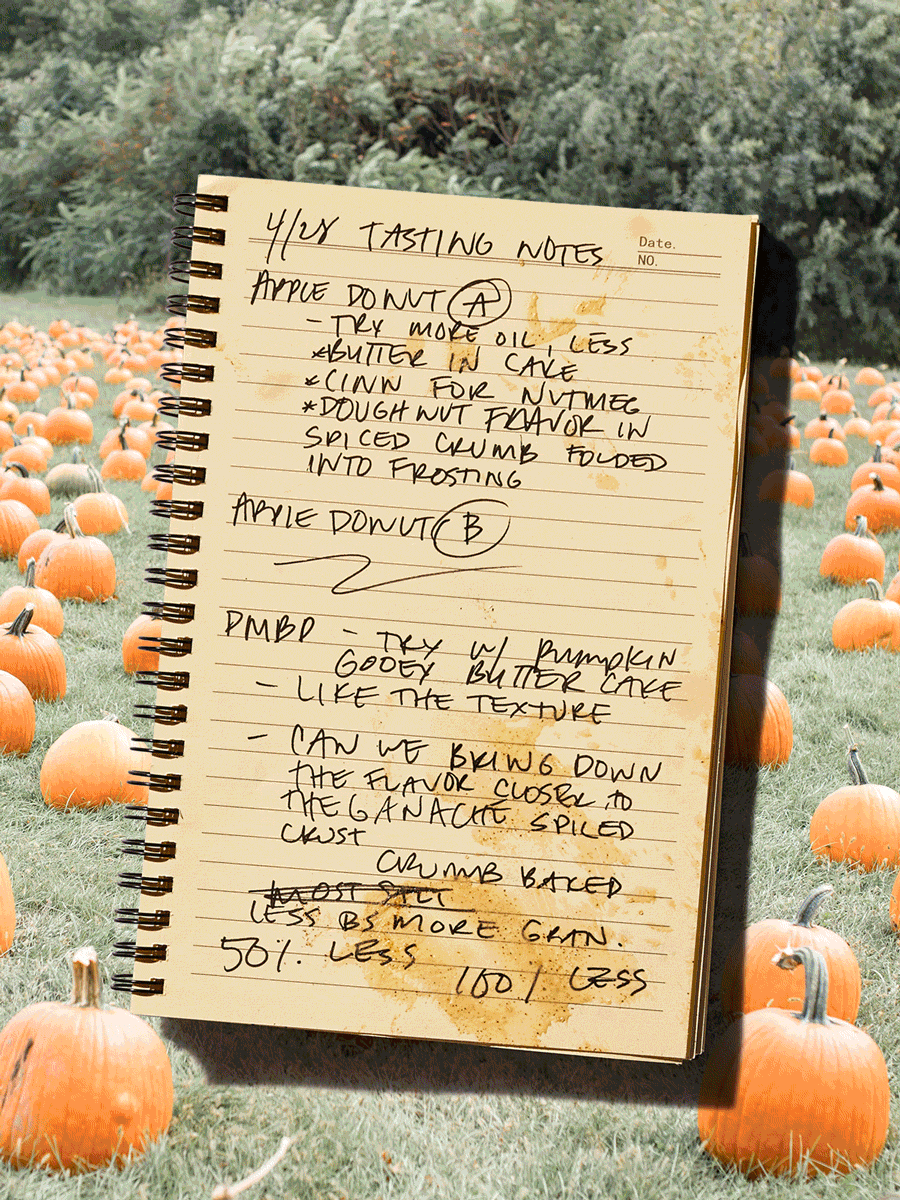 4/28 TASTING NOTES
Date.
NO.
APPLE DONUT A
- TRY MORE OIL, LESS
*BUTTER IN CAKE
*CINN FOR NUTMEG
*DOUGHNUT FLAVOR IN
SPICED CRUMB FOLDED
INTO FROSTING
APPLE DONUT B
PMBP - TRY W/ PUMPKIN
GOOEY BUTTER CAKE
- LIKE THE TEXTURE
- CAN WE BRING DOWN
THE FLAVOR CLOSER TO
THE GANACHE SPICED
CRUST
CRUMB BAKED
MOST
LESS BS MORE GRAN.
50% LESS
100% LESS